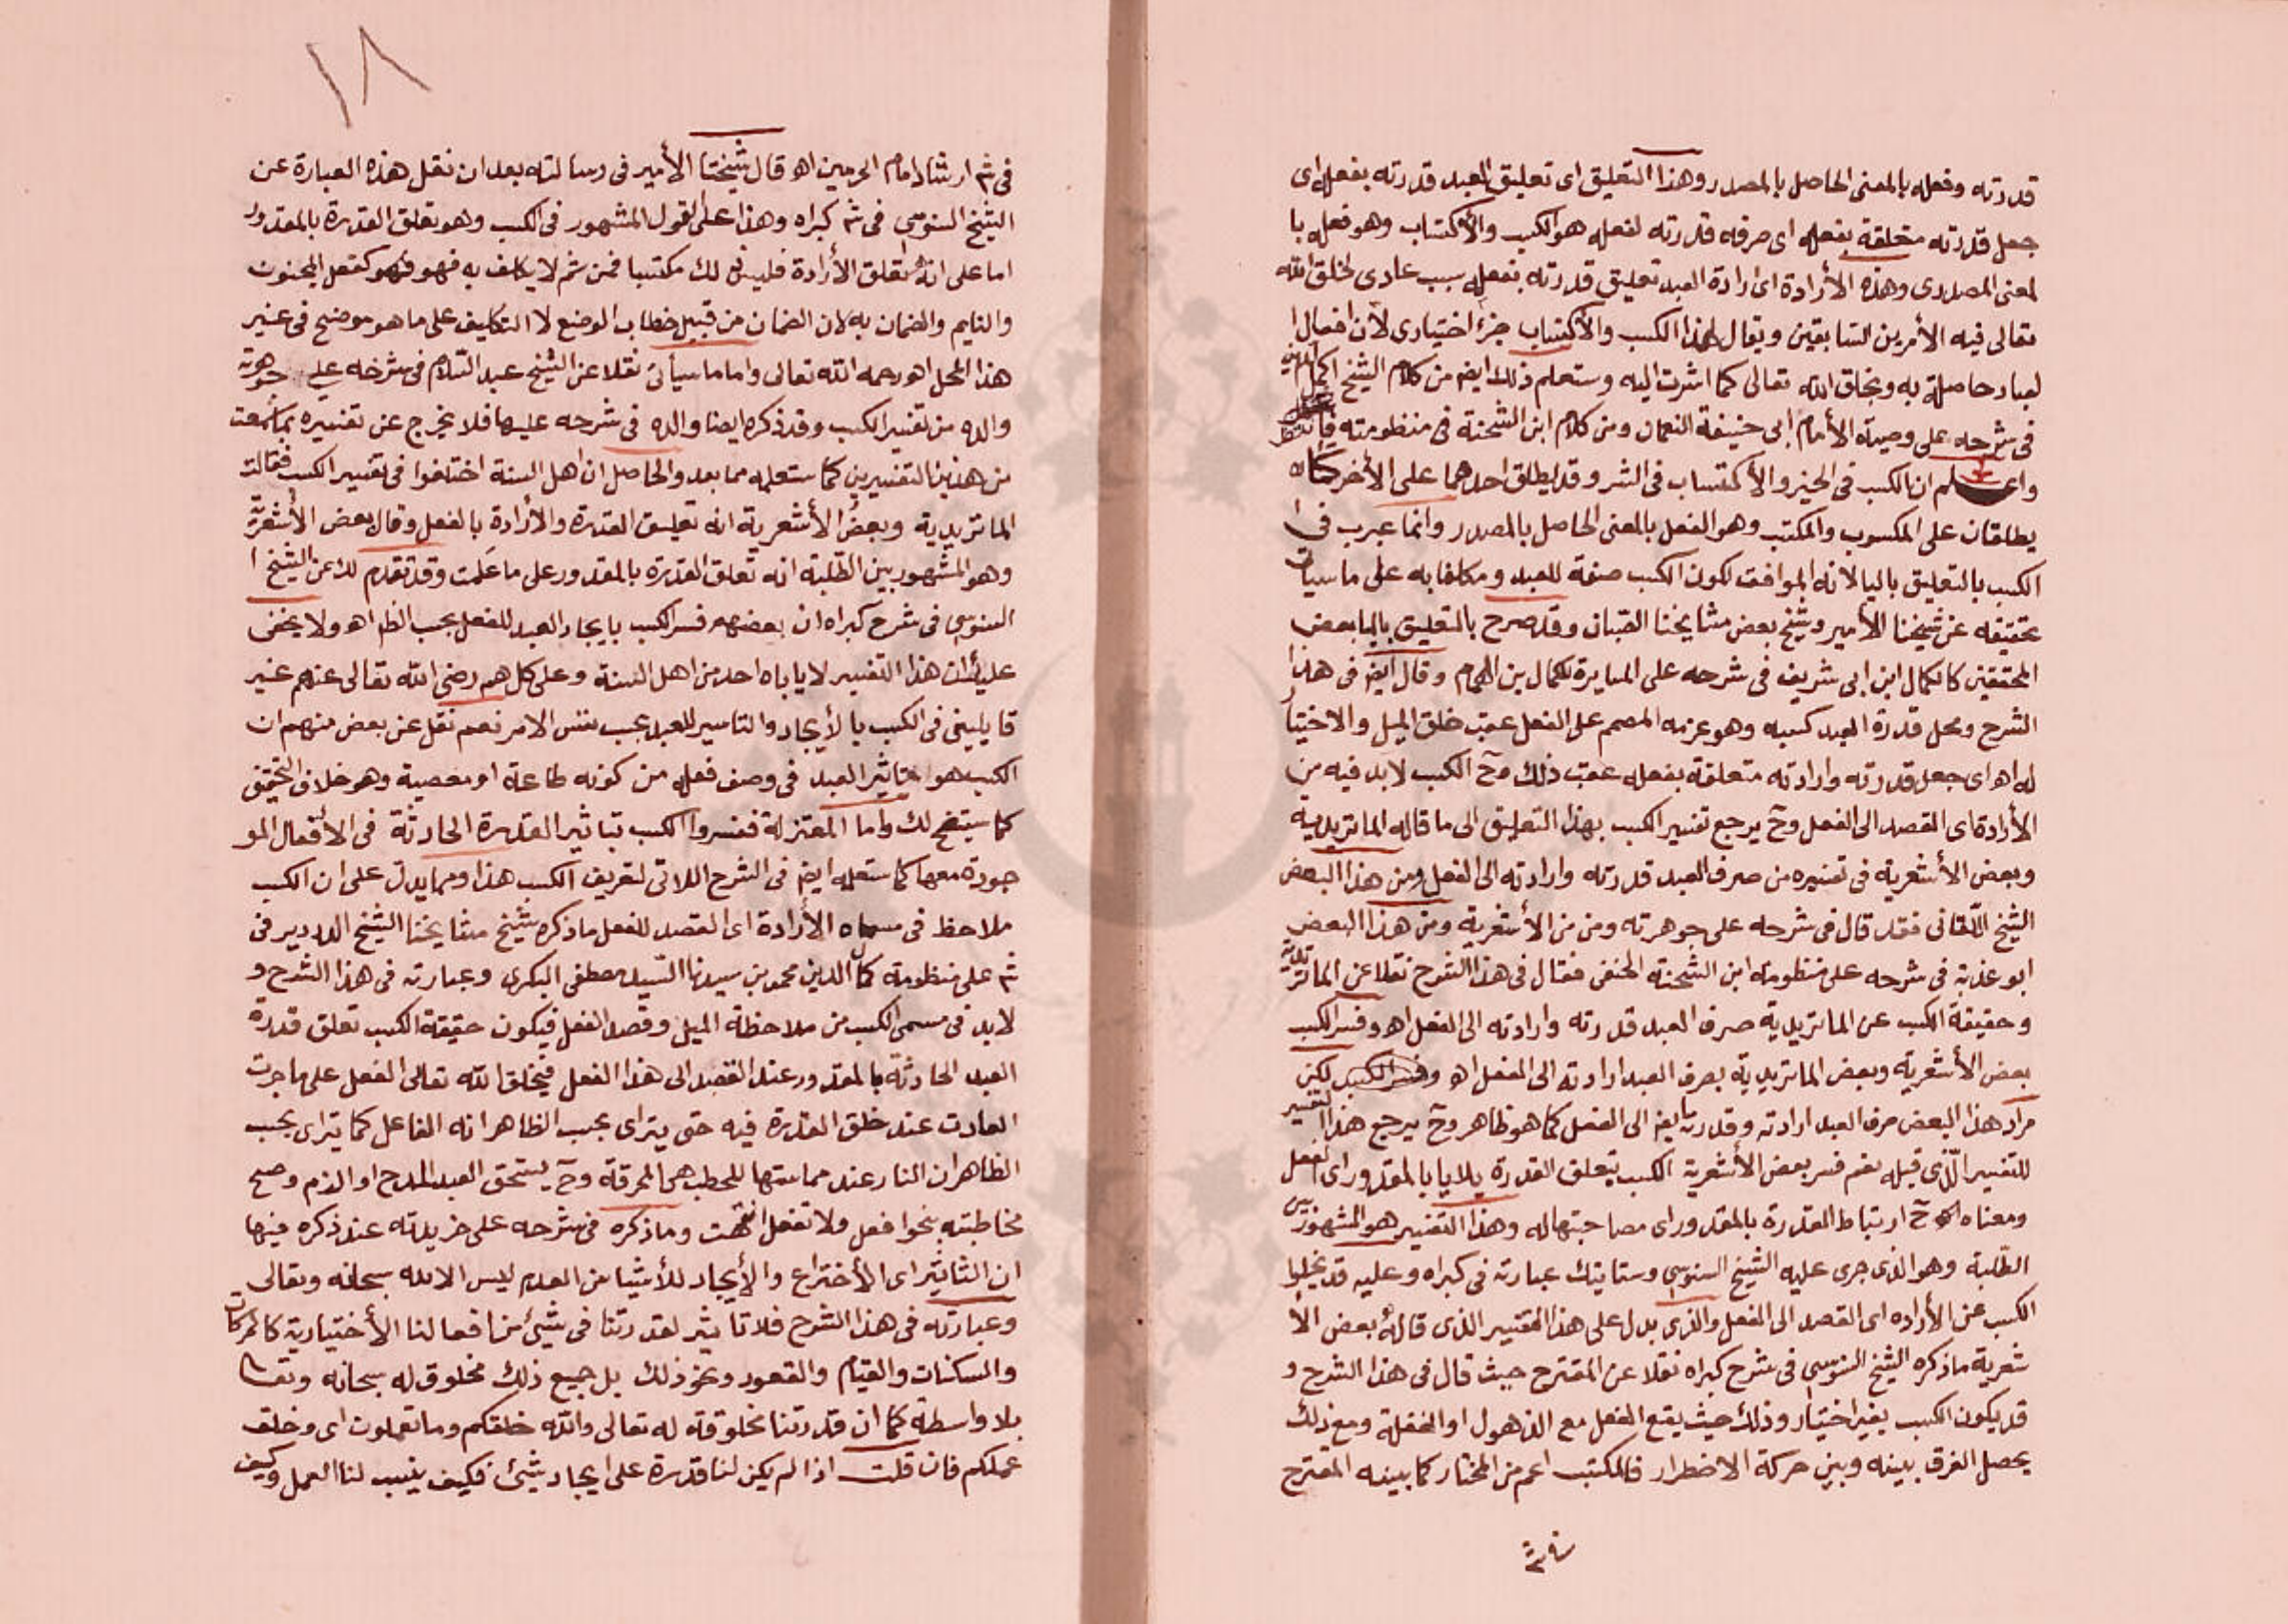 قدرته وفعله بالمعنى الحاصل بالمصدر وهذا التعليق اى تعليق العبد قدرته بفعله اى
جعل قدرته متعلقة بفعله اى صرفه قدرته لفعله هو الكسب والأكتساب وهو فعله با
لمعنى المصدرى وهذه الأرادة اى ارادة العبد تعليق قدرته بفعله سبب عادى لخلق الله
تعالى فيه الأمرين السابقين ويقال لهذا الكسب والأكتساب جزء اختيارى لأن افعال ا
لعباد حاصلة به وبخلق الله تعالى كما اشرت اليه وستعلم ذلك ايضا من كلام الشيخ اكمل الدين
فى شرحه على وصية الأمام ابى حنيفة النعمان ومن كلام ابن الشحنة فى منظومته
واعلم ان الكسب فى الخير والأكتساب فى الشر وقد يطلق احدهما على الأخر كما انه
يطلقان على المكسوب والمكتسب وهو الفعل بالمعنى الحاصل بالمصدر وانما عبرت فى ا
الكسب بالتعليق باليا لانه الموافق لكون الكسب صفة للعبد ومكلفا به على ما سيأتى
تحقيقه عن شيخنا الأمير وشيخ بعض مشايخنا القبان وقد صرح بالتعليق باليا بعض
المحققين كالكمال ابن ابى شريف فى شرحه على المسايرة للكمال بن الهمام وقال ايضا فى هذا
الشرح ومحل قدرة العبد كسبه وهو عزمه المصمم على الفعل عقب خلق الميل والاختيار
له اه اى جعل قدرته وارادته متعلقة بفعله عقب ذلك وح الكسب لا بد فيه من
الأرادة اى القصد الى الفعل وح يرجع تفسير الكسب بهذا التعليق الى ما قاله الماتريدية
وبعض الأشعرية فى تفسيره من صرف العبد قدرته وارادته الى الفعل ومن هذا البعض
الشيخ اللقانى فقد قال فى شرحه على جوهرته ومن من الأشعرية ومن هذا البعض
ابو عذبة فى شرحه على منظومة ابن الشحنة الحنفى فقال فى هذا الشرح نقلا عن الماتريدية
وحقيقة الكسب عن الماتريدية صرف العبد قدرته وارادته الى الفعل اه وفسر الكسب
بعض الأشعرية وبعض الماتريدية بصرف العبد ارادته الى الفعل اه لكن
مراد هذا البعض صرف العبد ارادته وقدرته ايضا الى الفعل كما هو ظاهر وح يرجع هذا التفسير
للتفسير الذى قبله نعم فسر بعض الأشعرية الكسب بتعلق القدرة بلا يا بالمقدور اى الفعل
ومعناه ح ارتباط القدرة بالمقدور اى مصاحبتها له وهذا التفسير هو المشهور بين
الطلبة وهو الذى جرى عليه الشيخ السنوسى وستاتيك عبارته فى كبراه وعليه قد يخلوا
الكسب عن الأراده اى القصد الى الفعل والذى يدل على هذا التفسير الذى قاله بعض الأ
شعرية ما ذكره الشيخ السنوسى فى شرح كبراه نقلا عن المقترح حيث قال فى هذا الشرح و
قد يكون الكسب بغير اختيار وذلك حيث يقع الفعل مع الذهول او الغفلة ومع ذلك
يحصل الفرق بينه وبين حركة الاضطرار فالمكتسب اعم من المختار كما بينه المقترح
١٨
فى شرح ارشاد امام الحرمين اه قال شيخنا الأمير فى رسالته بعد ان نقل هذه العبارة عن
الشيخ السنوسى فى شرح كبراه وهذا على القول المشهور فى الكسب وهو تعلق القدرة بالمقدور
اما على انه تعلق الأرادة فليس ذلك مكتسبا فمن ثم لا يكلف به فهو كفعل المجنون
والنايم والضمان به لان الضمان من قبيل خطاب الوضع لا التكليف على ما هو موضح فى غير
هذا المحل اه رحمه الله تعالى واما ما سيأتى نقلا عن الشيخ عبد السلام فى شرحه على جوهرة
والده من تفسير الكسب وقد ذكره ايضا والده فى شرحه عليها فلا يخرج عن تفسيره بما سمعت
من هذين التفسيرين كما ستعلمه مما بعد والحاصل ان اهل السنة اختلفوا فى تفسير الكسب فقالت
الماتريدية وبعض الأشعرية انه تعليق القدرة والأرادة بالفعل وقال بعض الأشعرية
وهو المشهور بين الطلبة انه تعلق القدرة بالمقدور على ما علمت وقد تقدم لك عن الشيخ ا
السنوسى فى شرح كبراه ان بعضهم فسر الكسب بايجاد العبد للفعل بحسب الظاهر اه ولا يخفى
عليك ان هذا التفسير لا ياباه احد من اهل السنة وعلى كل هم رضى الله تعالى عنهم غير
قايلين فى الكسب بالأيجاد والتاثير للعبد بحسب نفس الامر نعم نقل عن بعض منهم ان
الكسب هو تاثير العبد فى وصف فعله من كونه طاعة او معصية وهو خلاف التحقيق
كما سيتضح لك واما المعتزلة ففسروا الكسب بتاثير القدرة الحادثة فى الأفعال المو
جودة معها كما ستعلمه ايضا فى الشرح اللاتى لتعريف الكسب هذا ومما يدل على ان الكسب
ملاحظ فى مسماه الأرادة اى القصد للفعل ما ذكره شيخ مشايخنا الشيخ الدردير فى
شرح على منظومة كمال الدين محمد بن سيدنا السيد مصطفى البكرى وعبارته فى هذا الشرح و
لابد فى مسمى الكسب من ملاحظة الميل وقصد الفعل فيكون حقيقة الكسب تعلق قدرة
العبد الحادثة بالمقدور عند القصد الى هذا الفعل فيخلق الله تعالى الفعل على ما جرت
العادت عند خلق القدرة فيه حتى يتراى بحسب الظاهر انه الفاعل كما يتراى بحسب
الظاهر ان النار عند مماستها للحطب هى المحرقة وح يستحق العبد المدح او الذم وصح
مخاطبته بنحو افعل ولا تفعل انتهت وما ذكره فى شرحه على خريدته عند ذكره فيها
ان التاثير اى الأختراع والأيجاد للأشيا من العدم ليس الا لله سبحانه وتعالى
وعبارته فى هذا الشرح فلا تاثير لقدرتنا فى شىء من افعالنا الأختيارية كالحركات
والسكنات والقيام والقعود ونحو ذلك بل جميع ذلك مخلوق له سبحانه وتعالى
بلا واسطة كما ان قدرتنا مخلوقة له تعالى والله خلقكم وما تعملون اى وخلق
عملكم فان قلت اذا لم يكن لنا قدرة على ايجاد شىء فكيف ينسب لنا العمل وكيف